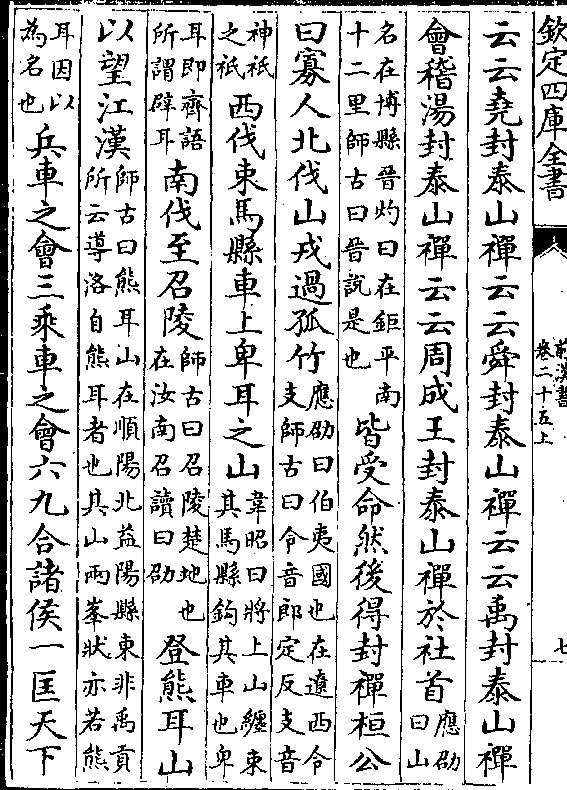 欽定四庫全書
前漢書
卷二十五上
七
云云堯封泰山禪云云舜封泰山禪云云禹封泰山禪
會稽湯封泰山禪云云周成王封泰山禪於社首應劭曰山
名在博縣晉灼曰在鉅平南十二里師古曰晉說是也皆受命然後得封禪桓公
曰寡人北伐山戎過孤竹應劭曰伯夷國也在遼西令支師古曰令音郎定反支音
神祇之祇西伐束馬縣車上卑耳之山韋昭曰將上山纏束其馬縣鉤其車也卑
耳即齊語所謂辟耳南伐至召陵師古曰召陵楚地也在汝南召讀曰劭登熊耳山
以望江漢師古曰熊耳山在順陽北益陽縣東非禹貢所云導洛自熊耳者也其山兩峯狀亦若熊
耳因以為名也兵車之會三乘車之會六九合諸侯一匡天下